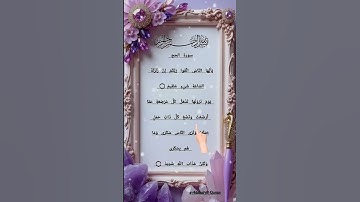 بسم الله الرحمن الرحيم
سورة الحج
يأيها الناس اتقوا ربكم إن زلزلة
الساعة شيء عظيم ۝
يوم ترونها تذهل كل مرضعة عما
أرضعت وتضع كل ذات حمل
وترى الناس سكرى وما
هم بسكرى
ولكن عذاب الله شديد ۝